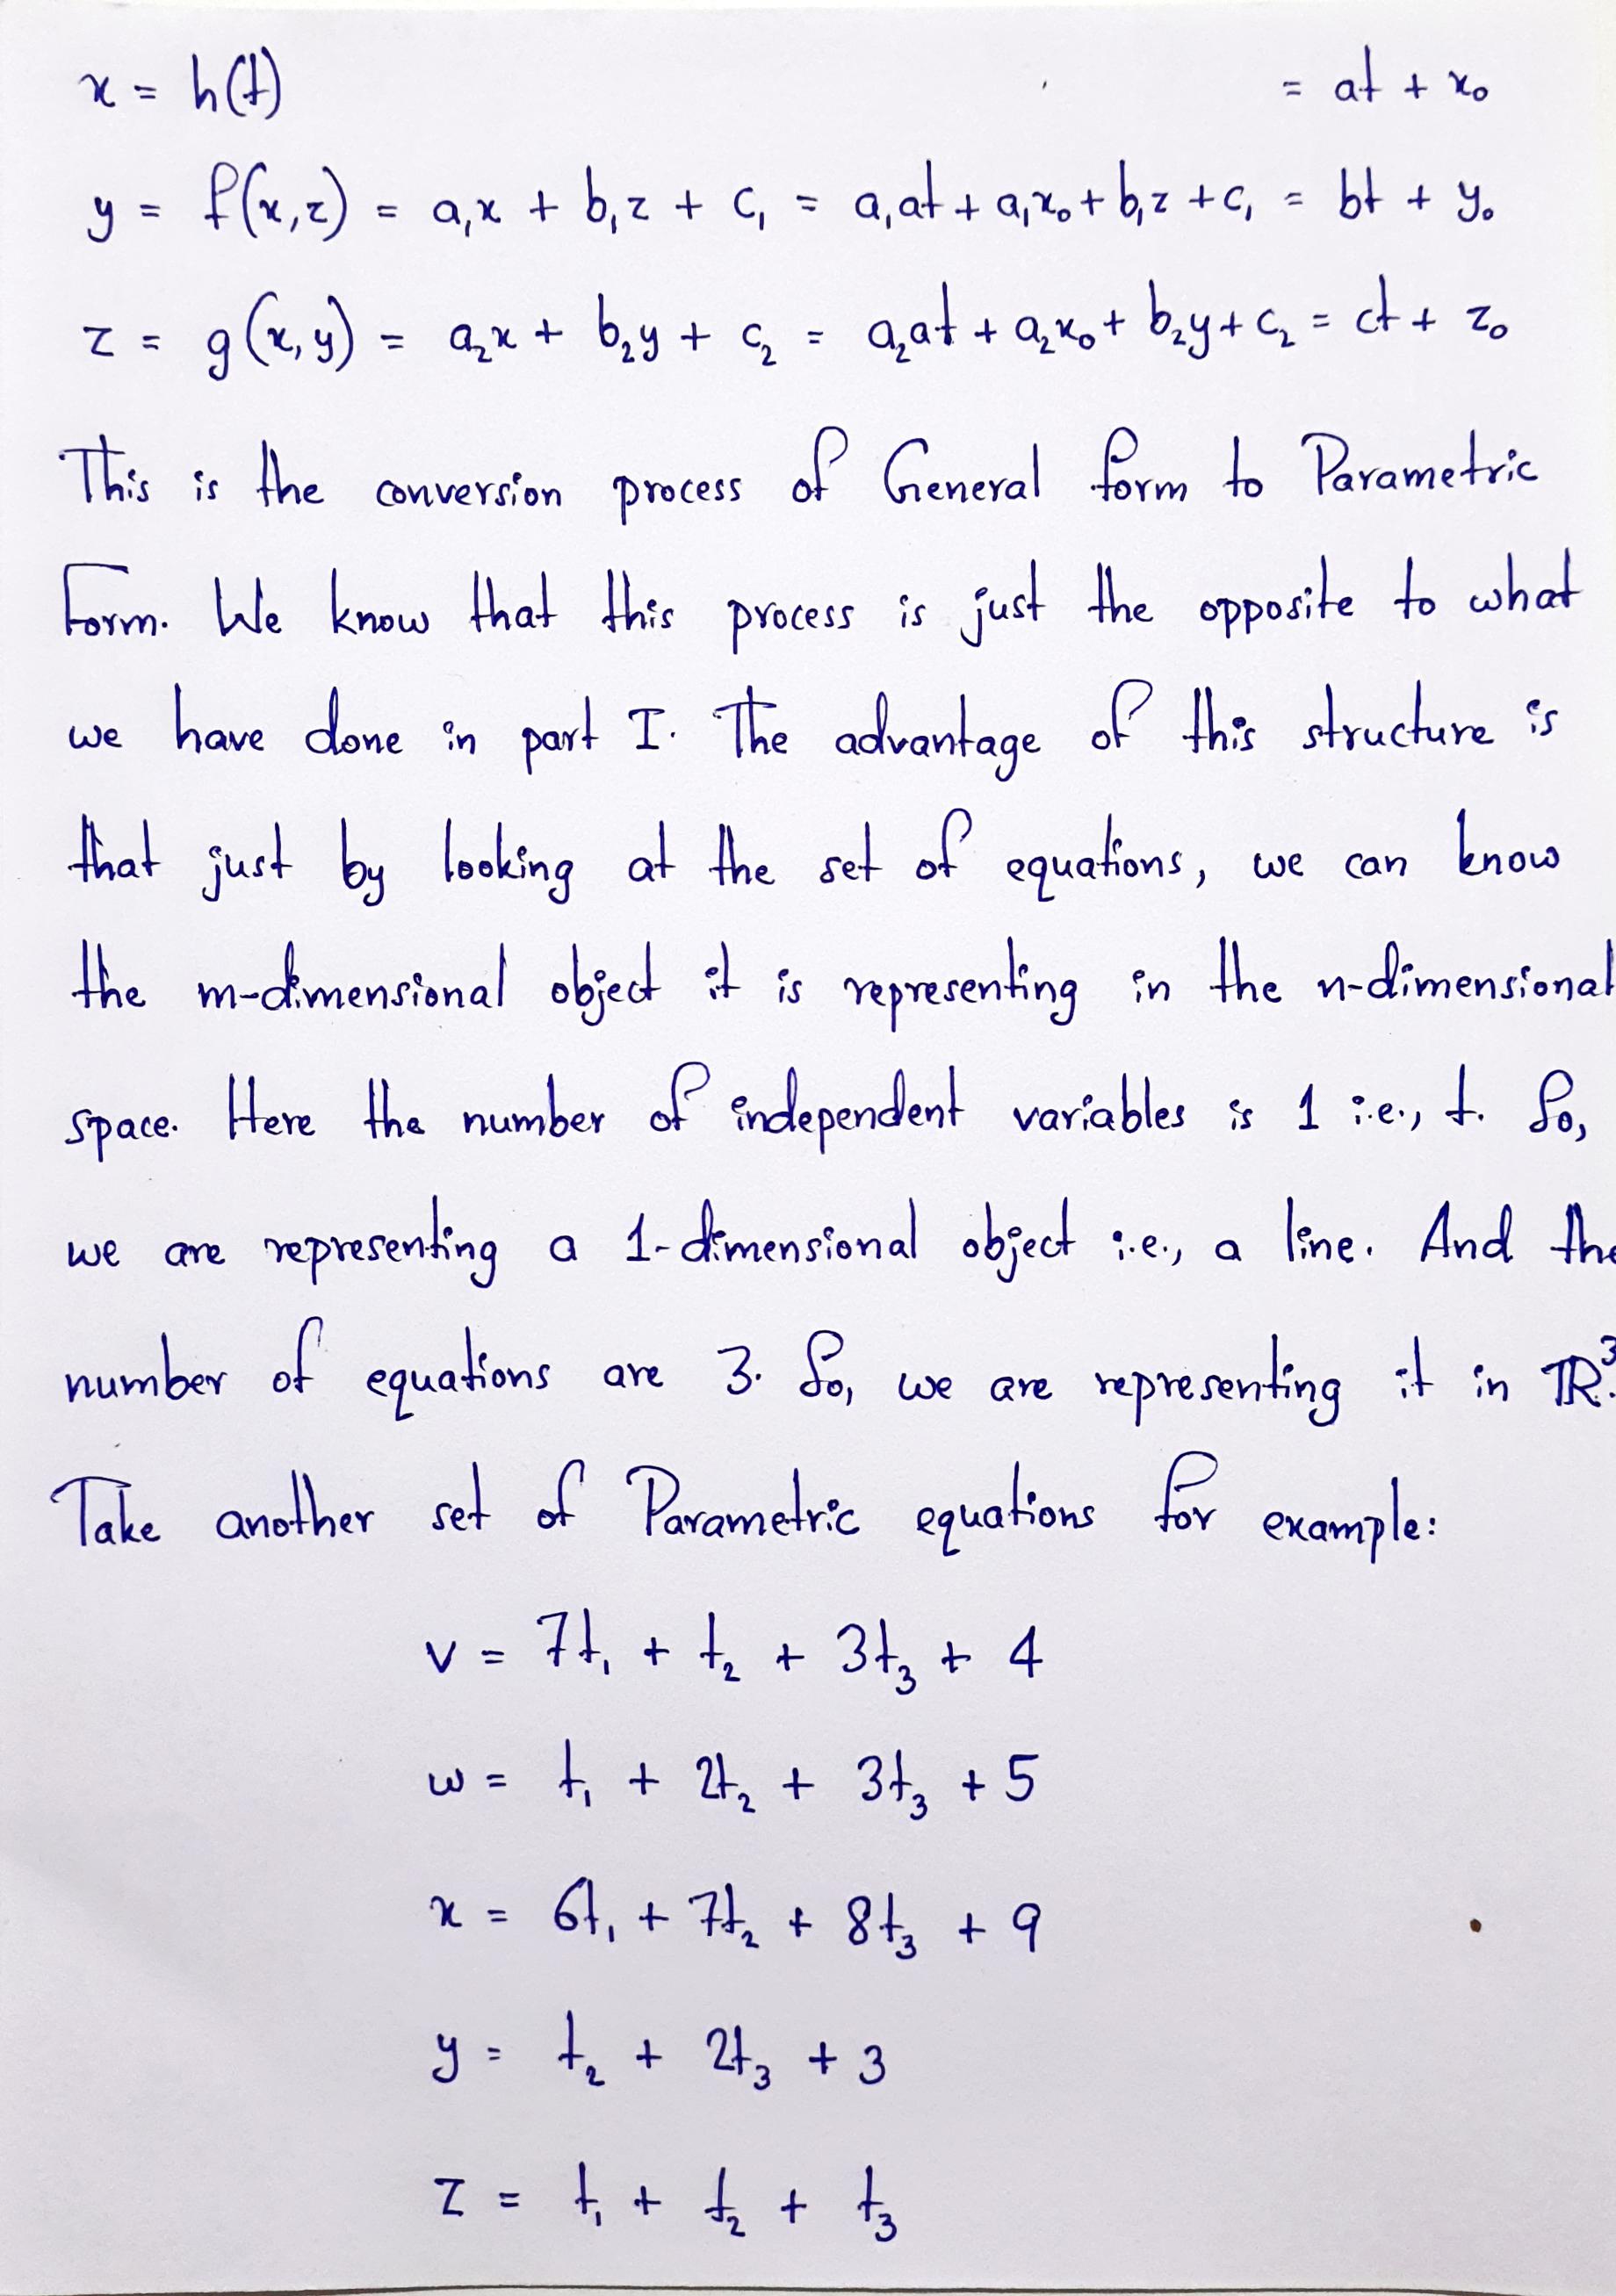 x = h(t) = at + x₀
y = f(x,z) = a₁x + b₁z + c₁ = a₁at + a₁x₀ + b₁z + c₁ = bt + y₀
z = g(x,y) = a₂x + b₂y + c₂ = a₂at + a₂x₀ + b₂y + c₂ = ct + z₀
This is the conversion process of General form to Parametric
Form. We know that this process is just the opposite to what
we have done in part I. The advantage of this structure is
that just by looking at the set of equations, we can know
the m-dimensional object it is representing in the n-dimensional
space. Here the number of independent variables is 1 i.e., t. So,
we are representing a 1-dimensional object i.e., a line. And the
number of equations are 3. So, we are representing it in ℝ³.
Take another set of Parametric equations for example:
v = 7t₁ + t₂ + 3t₃ + 4
w = t₁ + 2t₂ + 3t₃ + 5
x = 6t₁ + 7t₂ + 8t₃ + 9
y = t₂ + 2t₃ + 3
z = t₁ + t₂ + t₃